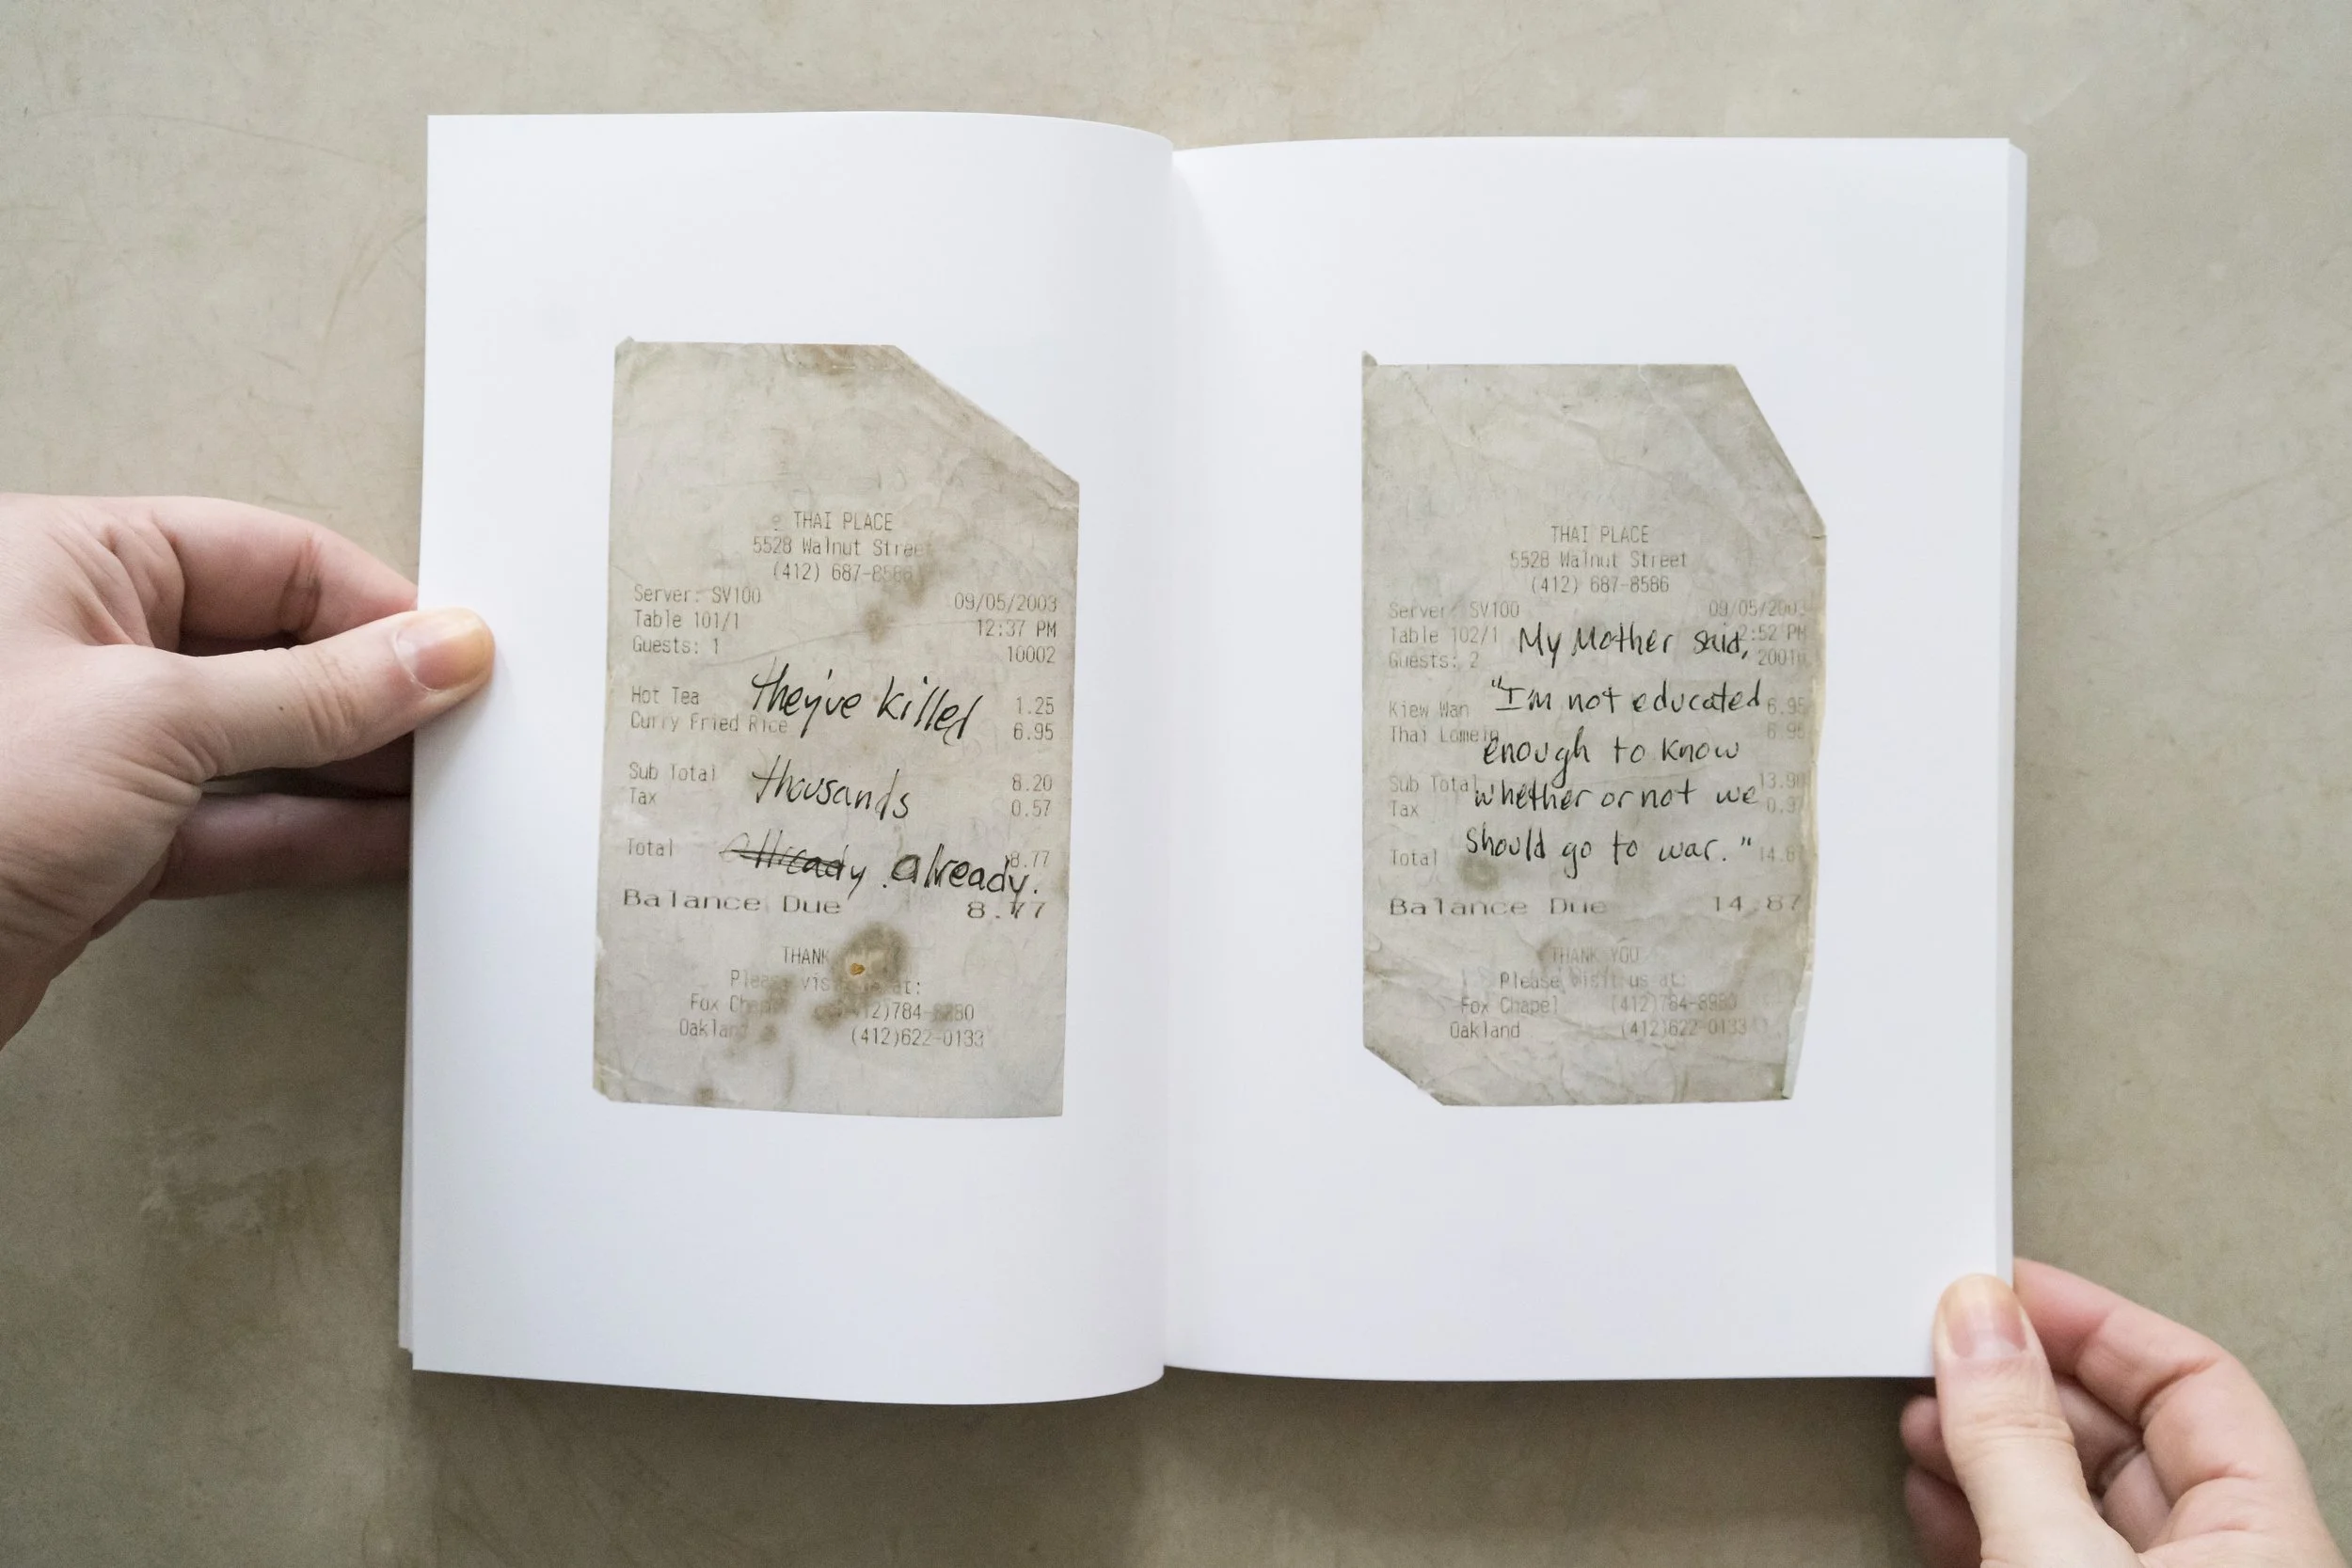 THAI PLACE
5528 Walnut Stree
(412) 687-8586
Server: SV100 09/05/2003
Table 101/1 12:37 PM
Guests: 1 10002
they've killed
Hot Tea 1.25
Curry Fried Rice 6.95
thousands
Sub Total 8.20
Tax 0.57
Total 8.77
already. already.
Balance Due 8.77
THANK
Please visit us at:
Fox Chapel (412)784-8980
Oakland (412)622-0133
THAI PLACE
5528 Walnut Street
(412) 687-8586
Server: SV100 09/05/2003
Table 102/1 2:52 PM
My Mother said,
Guests: 2
"I'm not educated
Kiew Wan 6.95
Thai Lomein 6.95
enough to know
Sub Total 13.90
whether or not we
Tax 0.97
should go to war."
Total
Balance Due 14.87
THANK YOU
Please visit us at:
Fox Chapel (412)784-8980
Oakland (412)622-0133